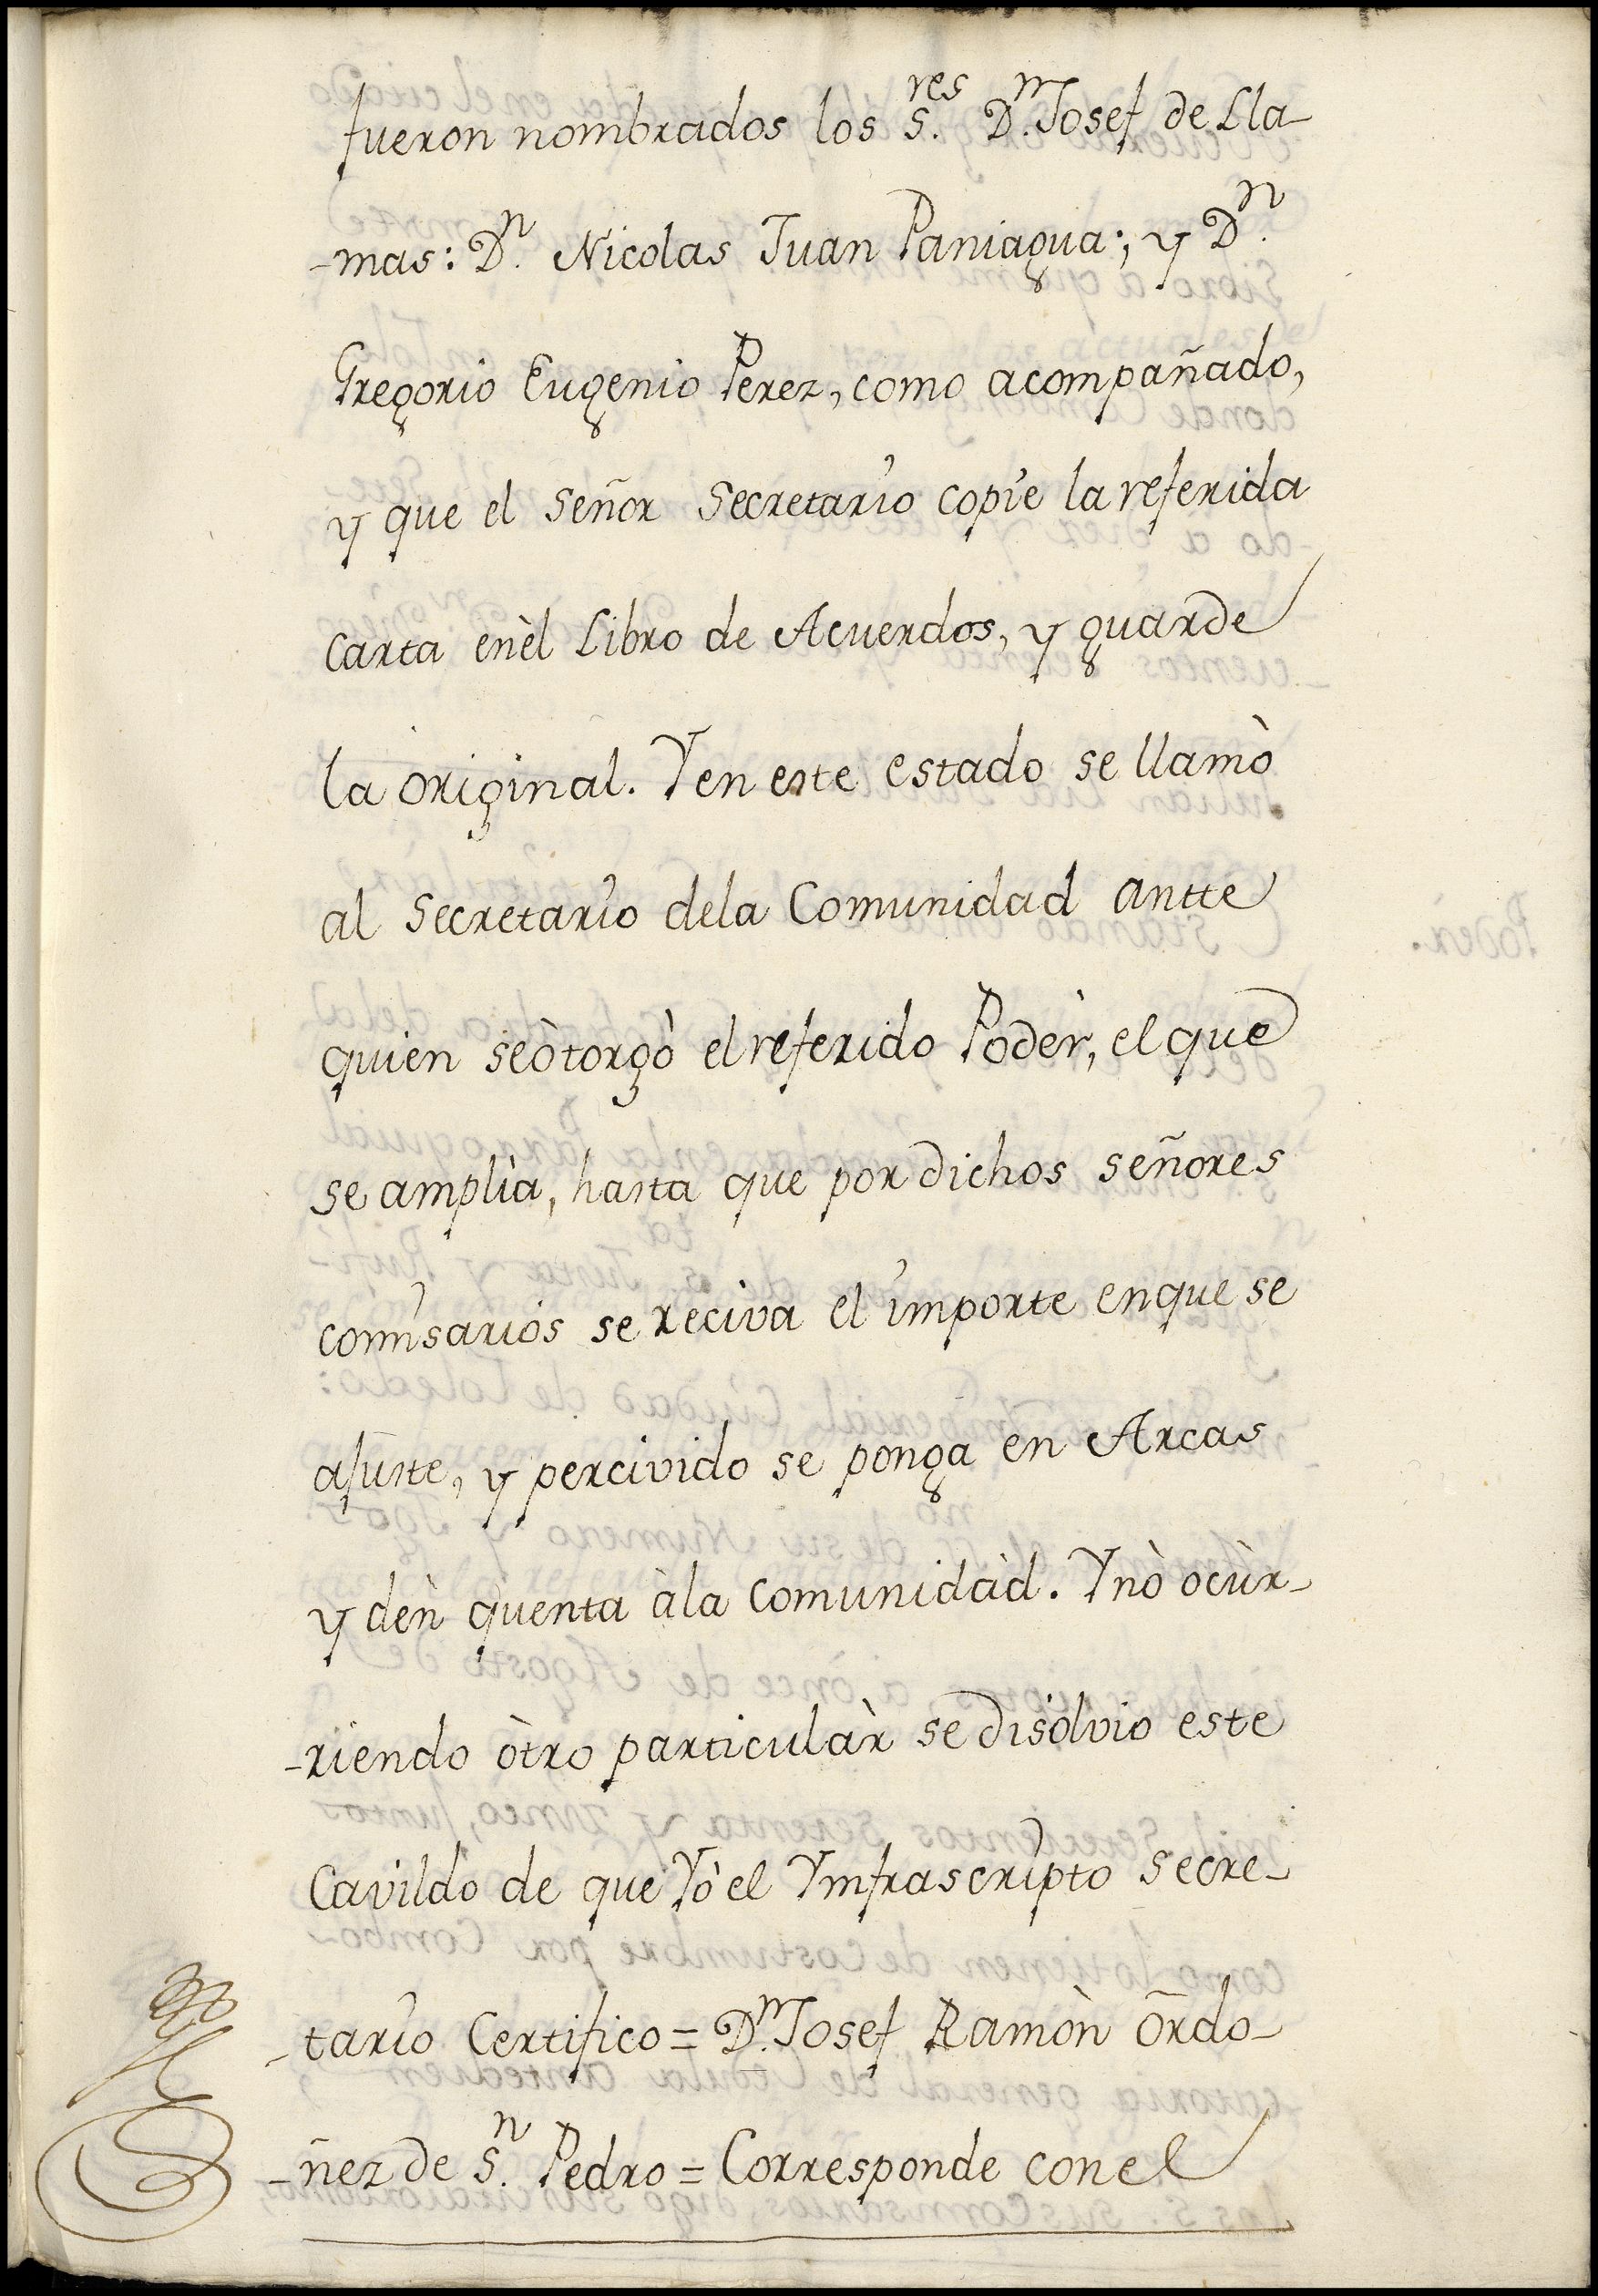 fueron nombrados los S.res D.n Josef de Lla-
-mas: D.n Nicolas Juan Paniagua; y D.n
Gregorio Eugenio Perez, como acompañado,
y que el Señor Secretario copie la referida
carta enèl Libro de Acuerdos, y guarde
la original. Y en este estado se llamò
al Secretario dela Comunidad antte
quien seòtorgò el referido Podèr, el que
se amplìa, hasta que por dichos señores
comisarios se reciva el importe enque se
ajuste, y percivido se ponga en Arcas,
y dèn quenta àla Comunidàd. Y nò ocùr-
-riendo òtro particulàr se disolvio este
Cavildo de que Yò el Ynfrascripto Secre-
-tario Certifico = D.n Josef Ramòn Ordo-
-ñez de S.n Pedro = Corresponde con el